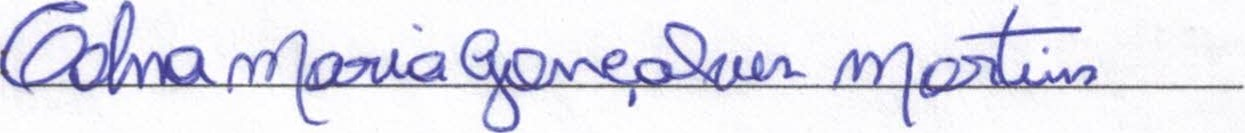 Edna Maria Gonçalves Martins